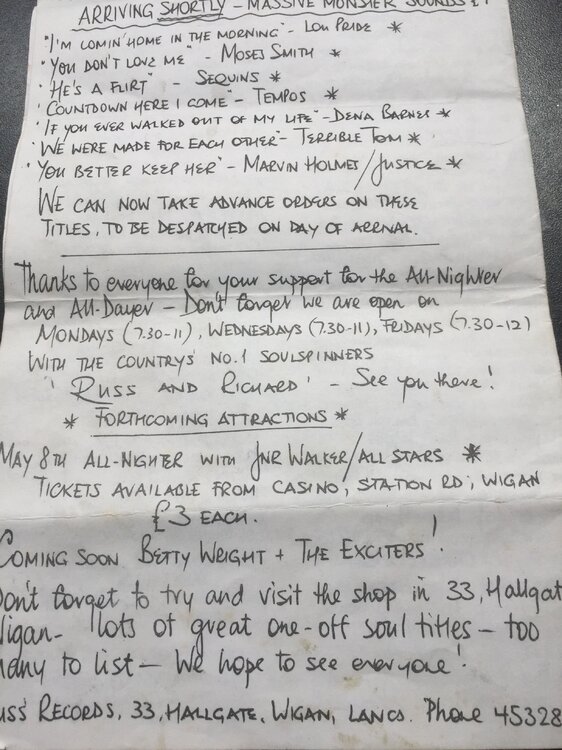 ARRIVING SHORTLY - MASSIVE MONSTER SOUNDS
"I'M COMIN' HOME IN THE MORNING" - LOU PRIDE *
"YOU DON'T LOVE ME" - MOSES SMITH *
"HE'S A FLIRT" - SEQUINS *
"COUNTDOWN HERE I COME" - TEMPOS *
"IF YOU EVER WALKED OUT OF MY LIFE" - DENA BARNES *
"WE WERE MADE FOR EACH OTHER" - TERRIBLE TOM *
"YOU BETTER KEEP HER" - MARVIN HOLMES/JUSTICE *
WE CAN NOW TAKE ADVANCE ORDERS ON THESE
TITLES, TO BE DESPATCHED ON DAY OF ARRIVAL.
Thanks to everyone for your support for the All-Nighter
and All-Dayer - Don't forget we are open on
MONDAYS (7.30-11), WEDNESDAYS (7.30-11), FRIDAYS (7.30-12)
WITH THE COUNTRYS NO.1 SOULSPINNERS
'RUSS AND RICHARD' - See you there!
* FORTHCOMING ATTRACTIONS *
MAY 8TH ALL-NIGHTER WITH JNR WALKER/ALL STARS *
TICKETS AVAILABLE FROM CASINO, STATION RD, WIGAN
£3 EACH.
COMING SOON BETTY WRIGHT + THE EXCITERS!
Don't forget to try and visit the shop in 33, Hallgat
Wigan - lots of great one-off soul titles - too
many to list - We hope to see everyone!
USS' RECORDS, 33, HALLGATE, WIGAN, LANCS. Phone 45328